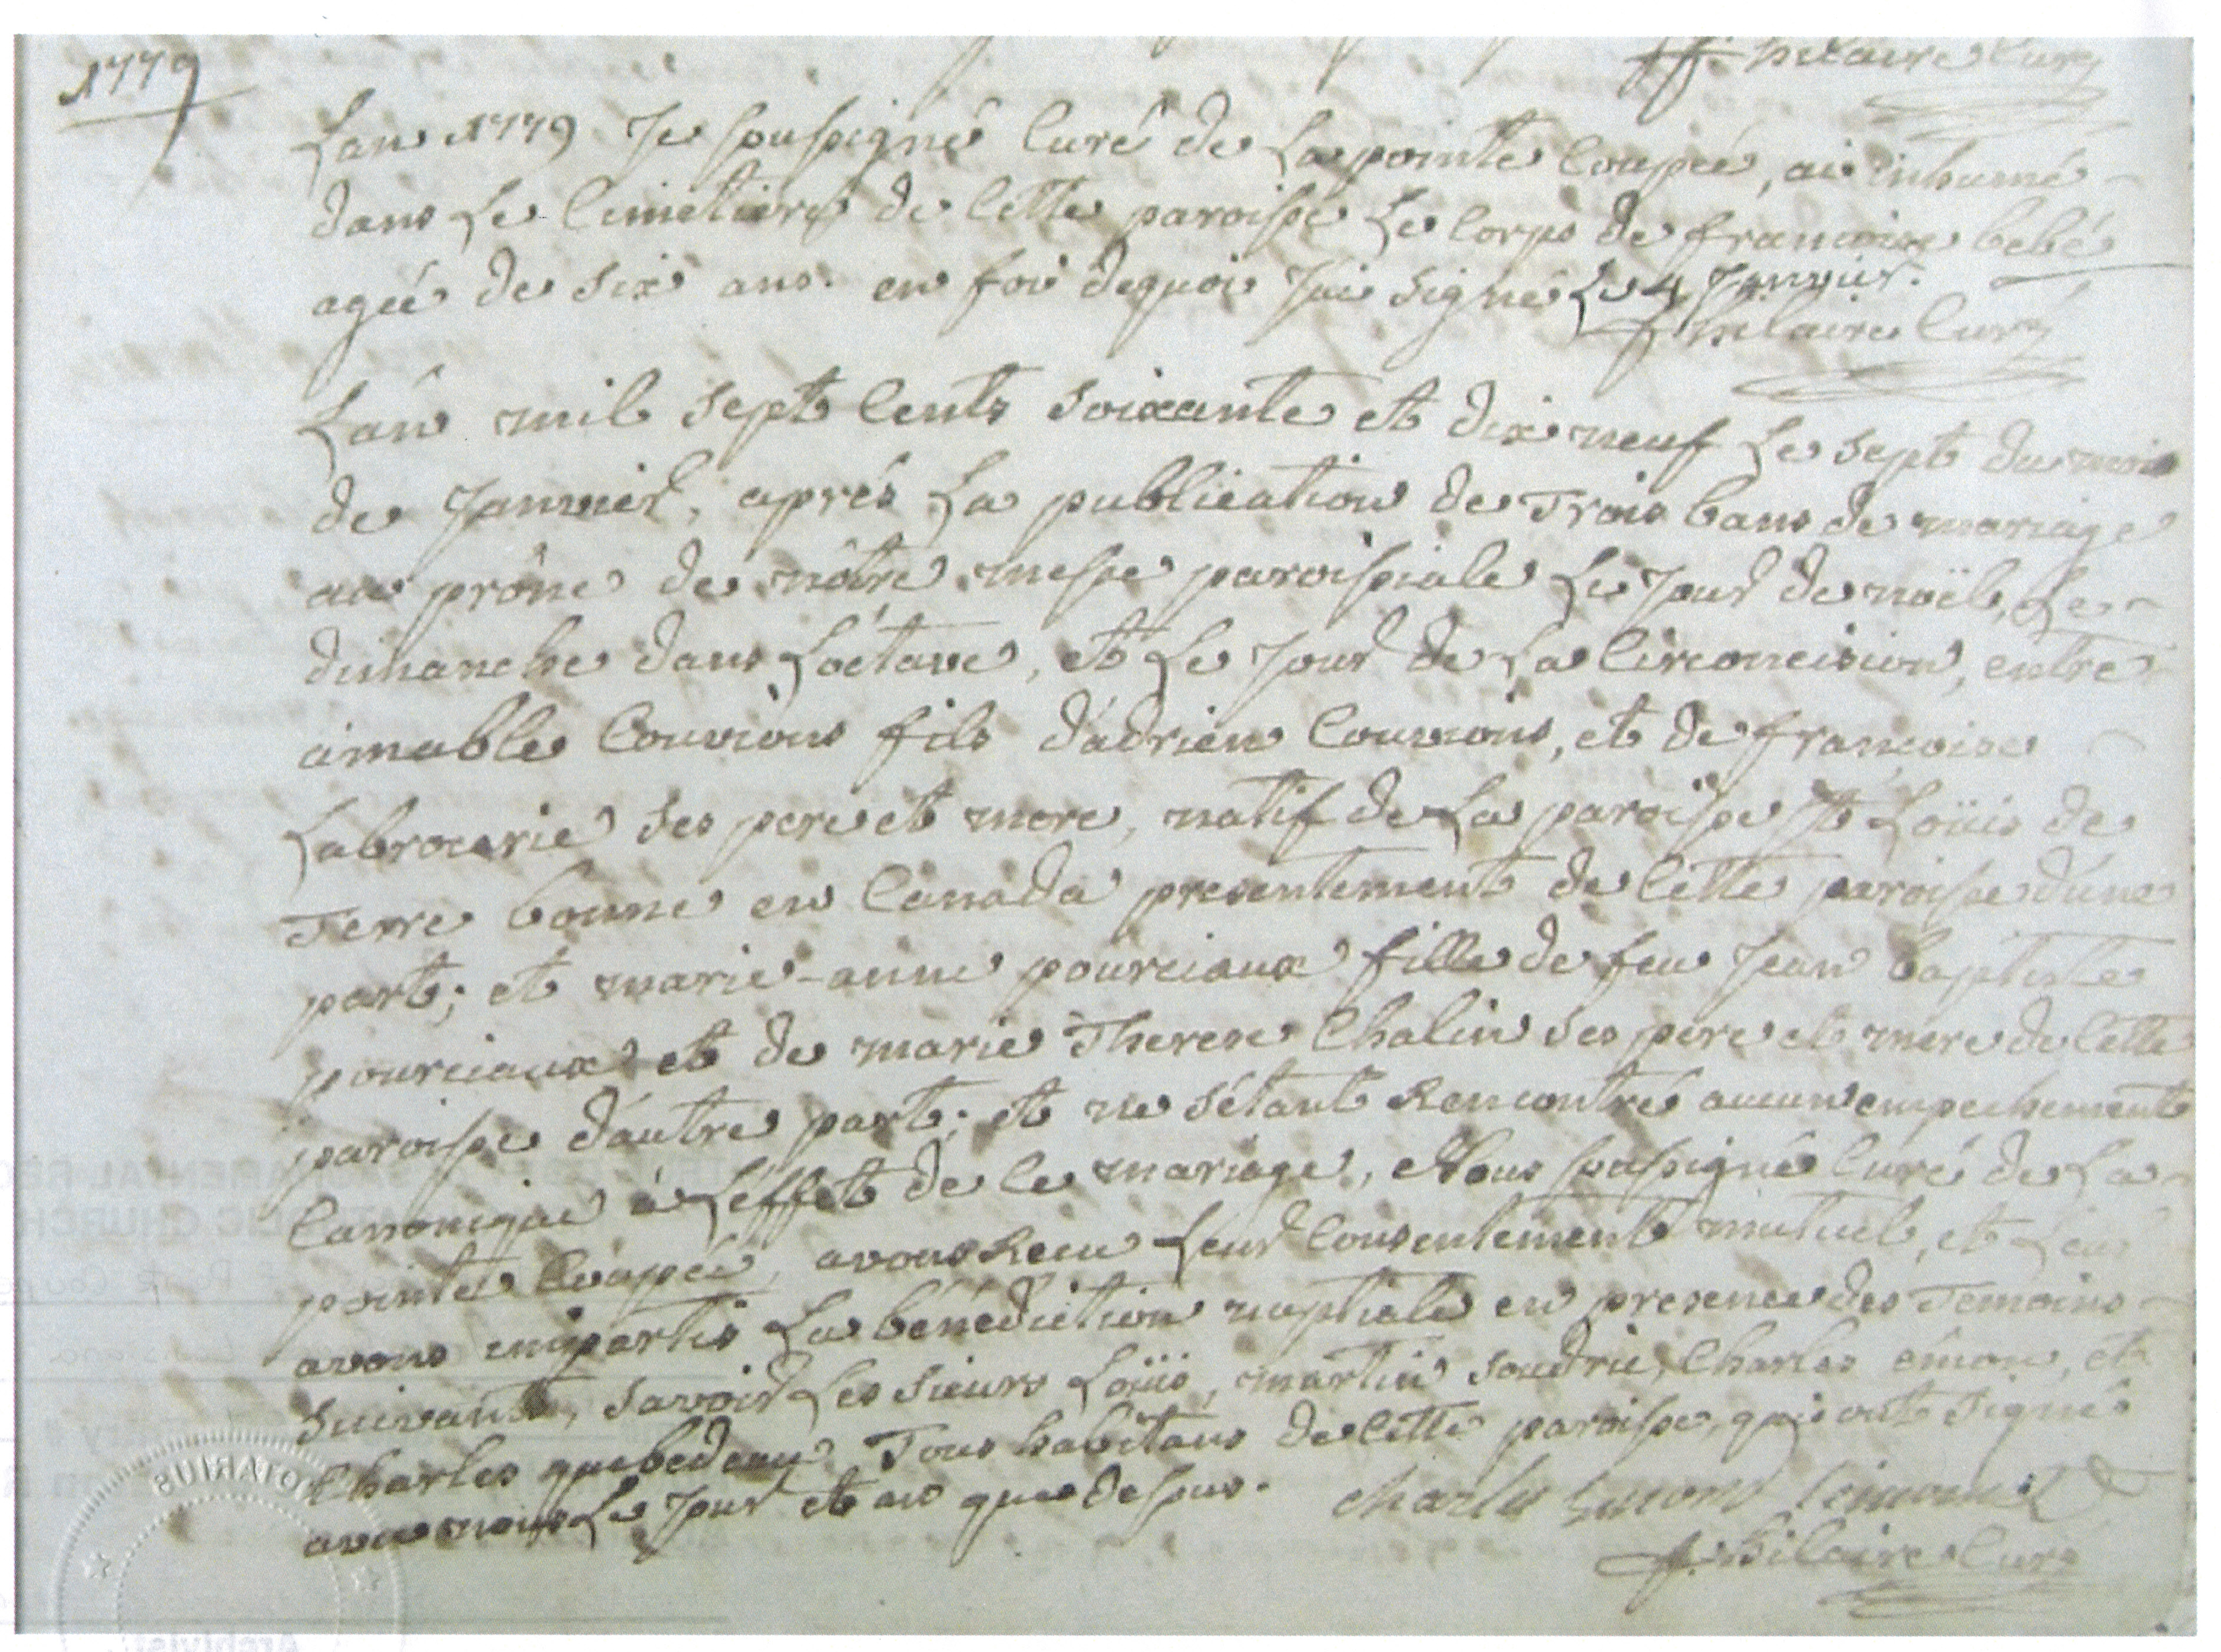 1779
f. hilaire Curé
Lan 1779 Je soussigné Curé de La pointe Coupée, ai inhumé
dans Le Cimetiere de Cette paroisse Le Corps de francoise bebé
agée de six ans. en foi dequoi J'ai signé Le 4 Janvier.
f. hilaire Curé
L'an mil sept Cents soixante et dix neuf Le sept du mois
de Janvier, aprés La publication de Trois bans de mariage
au prône de nôtre messe paroissiale Le Jour de noël, Le
dimanche dans L'octave, et Le Jour de La Circoncision, entre
aimable Couvion fils d'adrien Couvion, et de francoise
Labrocerie ses pere et mere, natif de La paroisse St Loüis de
Terre bonne en Canada presentement de Cette paroisse d'une
part; et marie-anne pourciaux fille de feu Jean baptiste
pourciaux et de marie Therese Chalin ses pere et mere de Cette
paroisse d'autre part; et ne s'étant Rencontré aucun empechement
Canonique à L'effet de Ce mariage, Nous soussigné Curé de La
pointe Coupée, avons Recu Leur Consentement mutuel, et Leur
avons impartis La bénédiction nuptiale en presence des Temoins
suivants, savoir Les sieurs Loüis, martin soudric, Charles émon, et
Charles quebedeau Tous habitans de Cette paroisse, qui ont signés
avec nous Le Jour et an que dessus. Charles
f. hilaire Curé